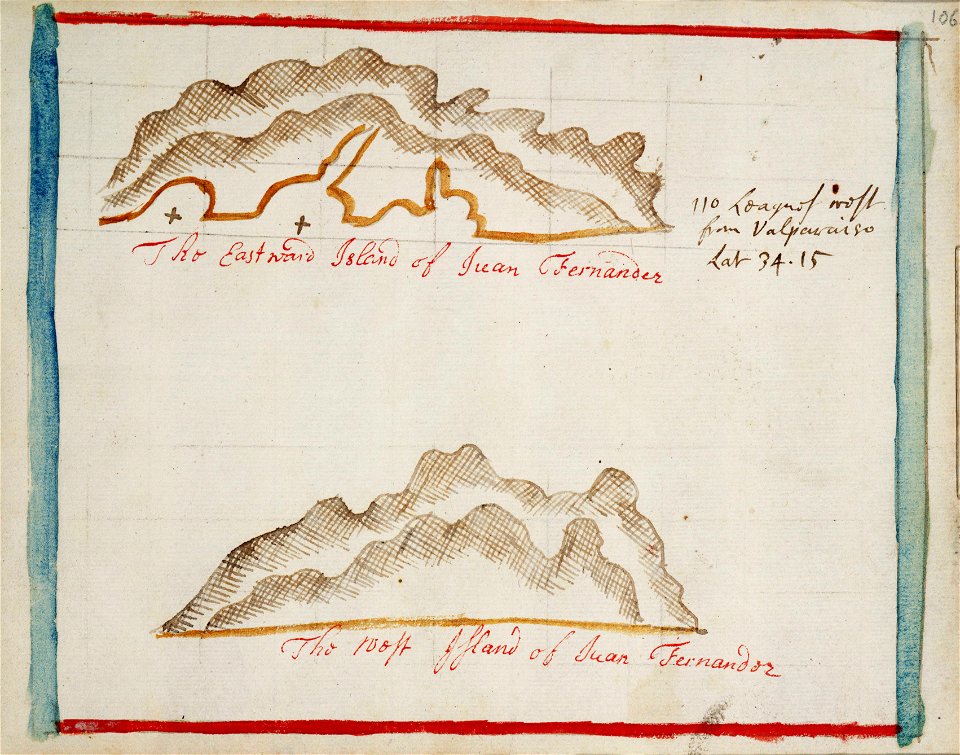 106
110 Leagues west
from Valparaiso
Lat 34.15
The Eastward Island of Juan Fernandez
The West Island of Juan Fernandez